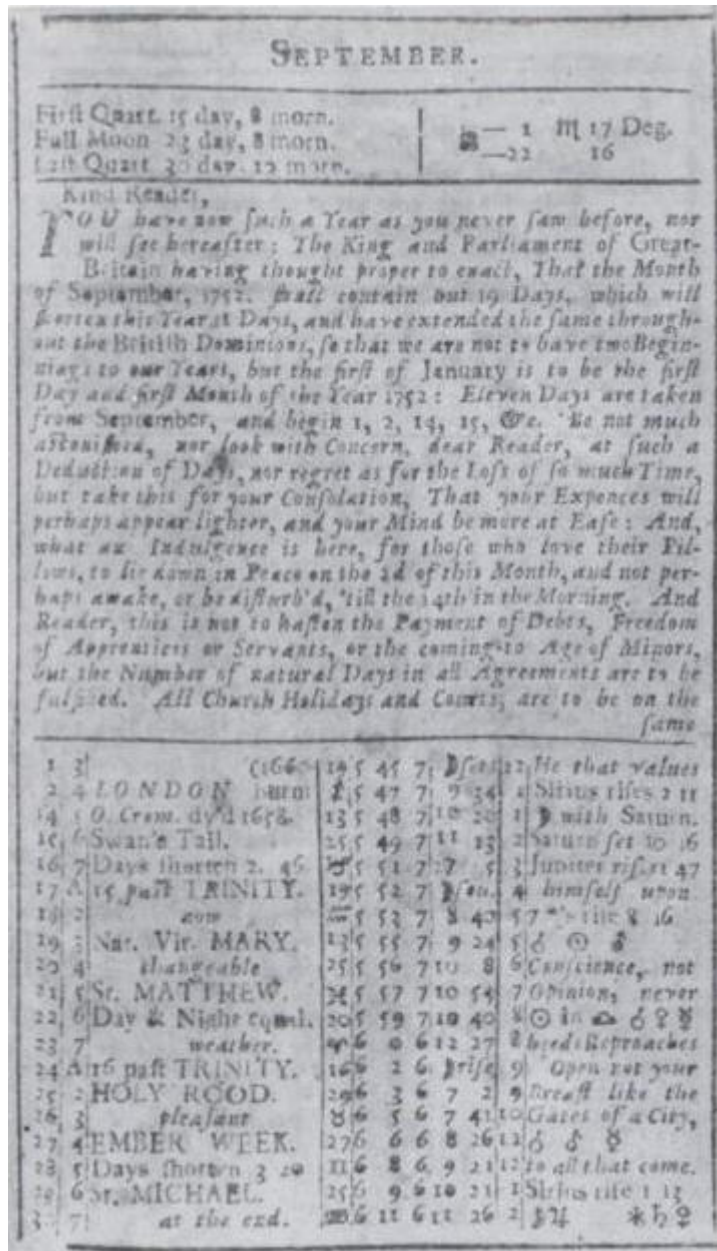 SEPTEMBER.
First Quart. 15 day, 8 morn.
Full Moon 23 day, 8 morn.
Last Quart. 30 day. 12 morn.
— 1 ♏ 17 Deg.
—22 16
Kind Reader,
YOU have now such a Year as you never saw before, nor
will see hereafter: The King and Parliament of Great-
Britain having thought proper to enact, That the Month
of September, 1752. shall contain but 19 Days, which will
shorten this Year 11 Days, and have extended the same through-
out the British Dominions, so that we are not to have two Begin-
nings to our Years, but the first of January is to be the first
Day and first Month of the Year 1752: Eleven Days are taken
from September, and begin 1, 2, 14, 15, &c. Be not much
astonished, nor look with Concern, dear Reader, at such a
Deduction of Days, nor regret as for the Loss of so much Time,
but take this for your Consolation, That your Expences will
perhaps appear lighter, and your Mind be more at Ease: And,
what an Indulgence is here, for those who love their Pil-
lows, to lie down in Peace on the 2d of this Month, and not per-
haps awake, or be disturb'd, 'till the 14th in the Morning. And
Reader, this is not to hasten the Payment of Debts, Freedom
of Apprentices or Servants, or the coming to Age of Minors,
but the Number of natural Days in all Agreements are to be
fulfilled. All Church Holidays and Courts, are to be on the
same
1 3 (166 5 45 7 ☽ sets 12 He that values
2 4 LONDON burn 5 47 7 9 34 1 Sirius rises 2 11
14 5 O. Crom. dy'd 1658. 13 5 48 7 10 20 1 ☽ with Saturn.
15 6 Swan's Tail. 25 5 49 7 11 13 2 Saturn set 10 16
16 7 Days shorten 2. 46 5 51 7 5 3 Jupiter rise 47
17 A 15 past TRINITY. 19 5 52 7 ☽ sou. 4 himself upon
18 2 now ♒ 5 53 7 8 40 5 7 *'s rise 8 16
19 3 Nat. Vir. MARY. 13 5 55 7 9 24 5 ☌ ☉ ♂
20 4 changeable 25 5 56 7 10 8 6 Conscience, not
21 5 St. MATTHEW. ♓ 5 57 7 10 54 7 Opinion, never
22 6 Day & Night equal. 20 5 59 7 10 40 8 ☉ in ♎ ☌ ♀ ☿
23 7 weather. ♈ 6 0 6 12 27 8 heeds Reproaches
24 A 16 past TRINITY. 16 6 2 6 ☽ rise 9 Open not your
25 2 HOLY ROOD. 29 6 3 6 7 2 9 Breast like the
26 3 pleasant ♉ 6 5 6 7 41 10 Gates of a City,
27 4 EMBER WEEK. 27 6 6 6 8 26 12 ☌ ♂ ☿
28 5 Days shorten 3 20 11 6 8 6 9 21 12 to all that come.
29 6 St. MICHAEL. 25 6 9 6 10 21 1 Sirius rise 1 13
3 7 at the end. 6 11 6 11 26 2 ♃ * ♄ ♀